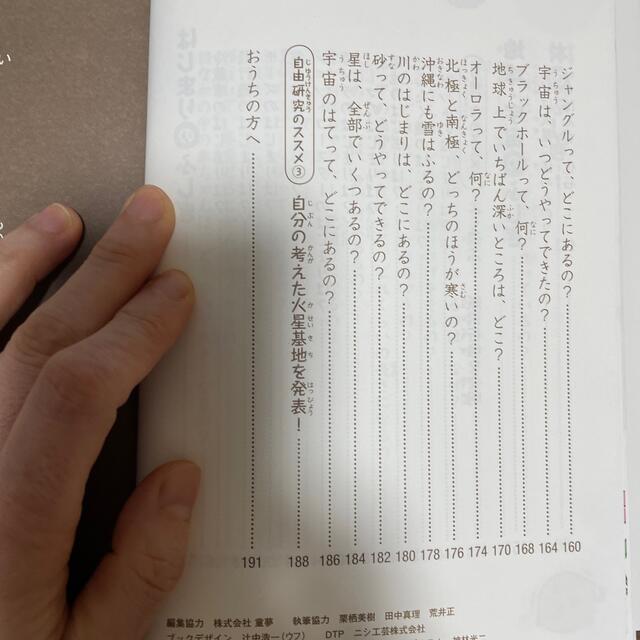 ジャングルって、どこにあるの？ 160
宇宙は、いつどうやってできたの？ 164
ブラックホールって、何？ 168
地球上でいちばん深いところは、どこ？ 170
オーロラって、何？ 174
北極と南極、どっちのほうが寒いの？ 176
沖縄にも雪はふるの？ 178
川のはじまりは、どこにあるの？ 180
砂って、どうやってできるの？ 182
星は、全部でいくつあるの？ 184
宇宙のはてって、どこにあるの？ 186
自由研究のススメ③ 自分の考えた火星基地を発表！ 188
おうちの方へ 191
編集協力 株式会社 童夢 執筆協力 栗栖美樹 田中真理 荒井正
ブックデザイン 辻中浩一（ウフ） DTP ニシ工芸株式会社